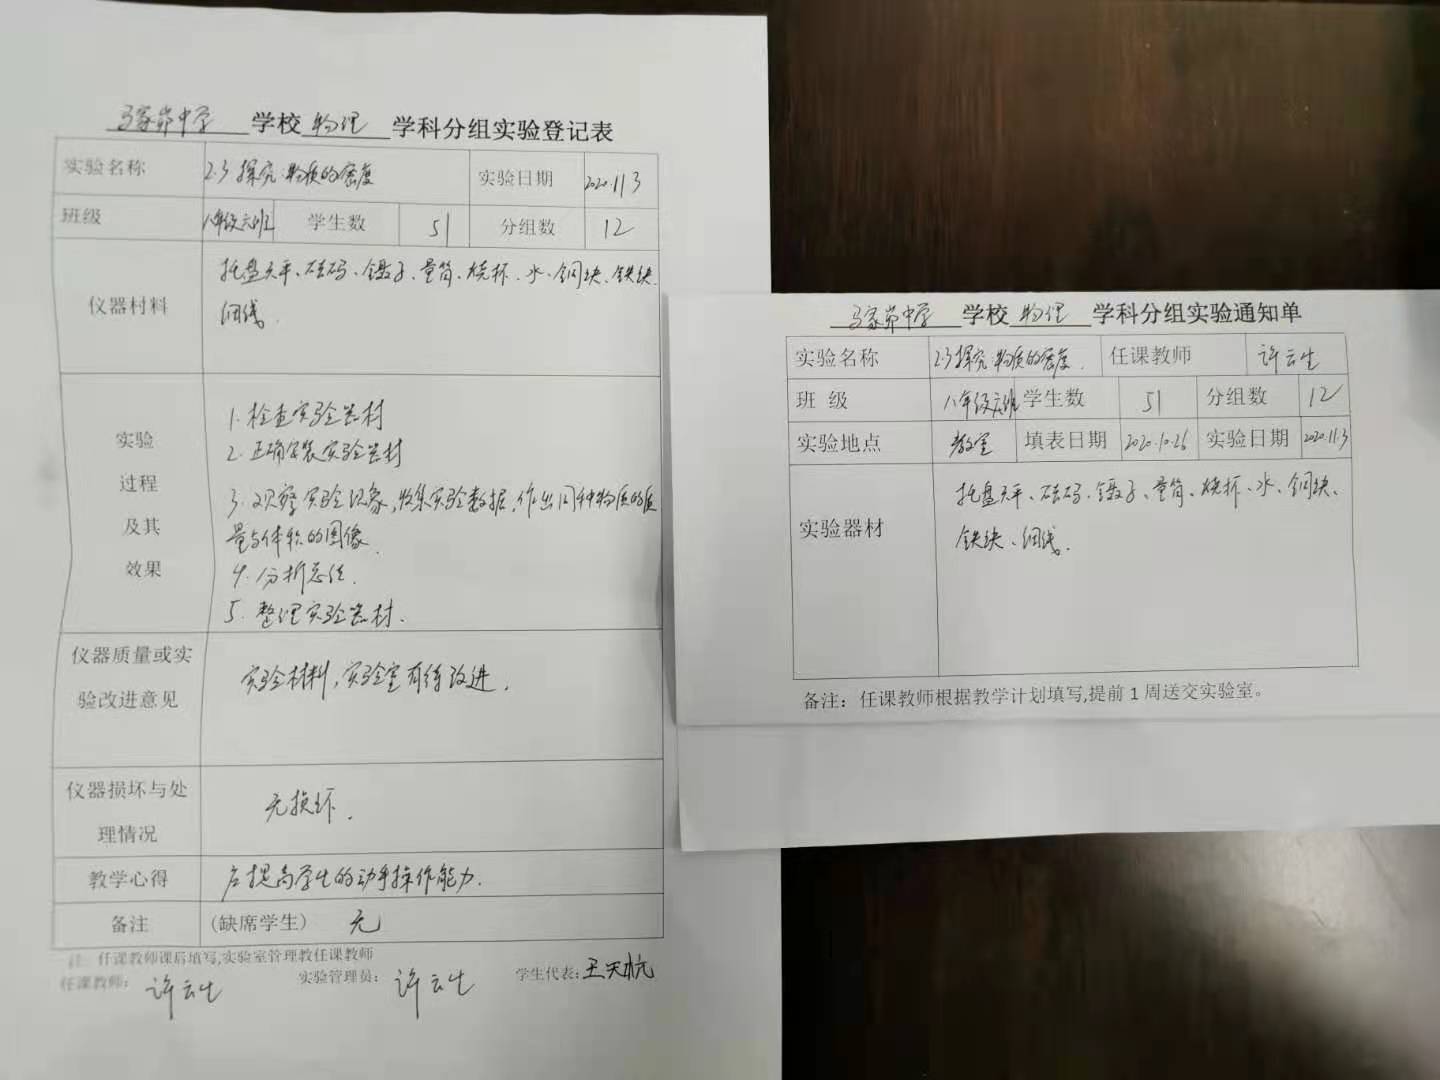 马家岸中学 学校 物理 学科分组实验登记表
实验名称 2.3探究物质的密度 实验日期 2020.11.3
班级 八年级六班 学生数 51 分组数 12
仪器材料 托盘天平、砝码、镊子、量筒、烧杯、水、铜块、铁块
细线.
实验过程及其效果
1. 检查实验器材
2. 正确安装实验器材
3. 观察实验现象,收集实验数据,作出同种物质的质
量与体积的图像.
4. 分析总结.
5. 整理实验器材.
仪器质量或实验改进意见 实验材料,实验室有待改进.
仪器损坏与处理情况 无损坏.
教学心得 应提高学生的动手操作能力.
备注 (缺席学生) 无
注:任课教师课后填写,实验室管理教任课教师
任课教师: 许云生 实验管理员: 许云生 学生代表: 王天杭
马家岸中学 学校 物理 学科分组实验通知单
实验名称 2.3探究物质的密度. 任课教师 许云生
班 级 八年级六班 学生数 51 分组数 12
实验地点 教室 填表日期 2020.10.26 实验日期 2020.11.3
实验器材 托盘天平、砝码、镊子、量筒、烧杯、水、铜块、
铁块、细线.
备注:任课教师根据教学计划填写,提前1周送交实验室。